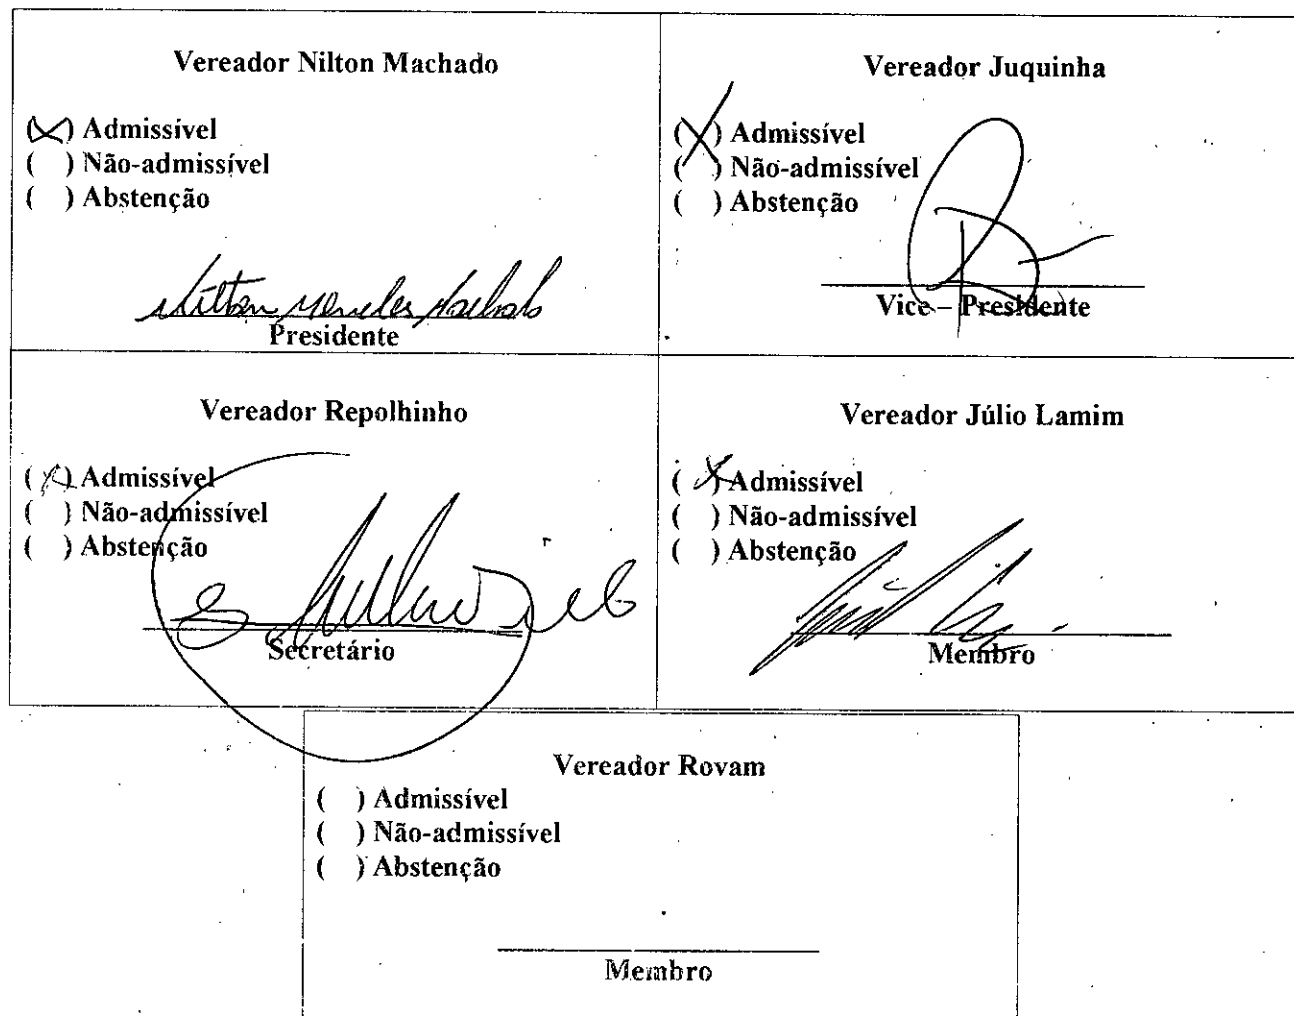 Vereador Nilton Machado
(X) Admissível
( ) Não-admissível
( ) Abstenção
Presidente
Vereador Juquinha
(X) Admissível
( ) Não-admissível
( ) Abstenção
Vice – Presidente
Vereador Repolhinho
(X) Admissível
( ) Não-admissível
( ) Abstenção
Secretário
Vereador Júlio Lamim
(X) Admissível
( ) Não-admissível
( ) Abstenção
Membro
Vereador Rovam
( ) Admissível
( ) Não-admissível
( ) Abstenção
Membro